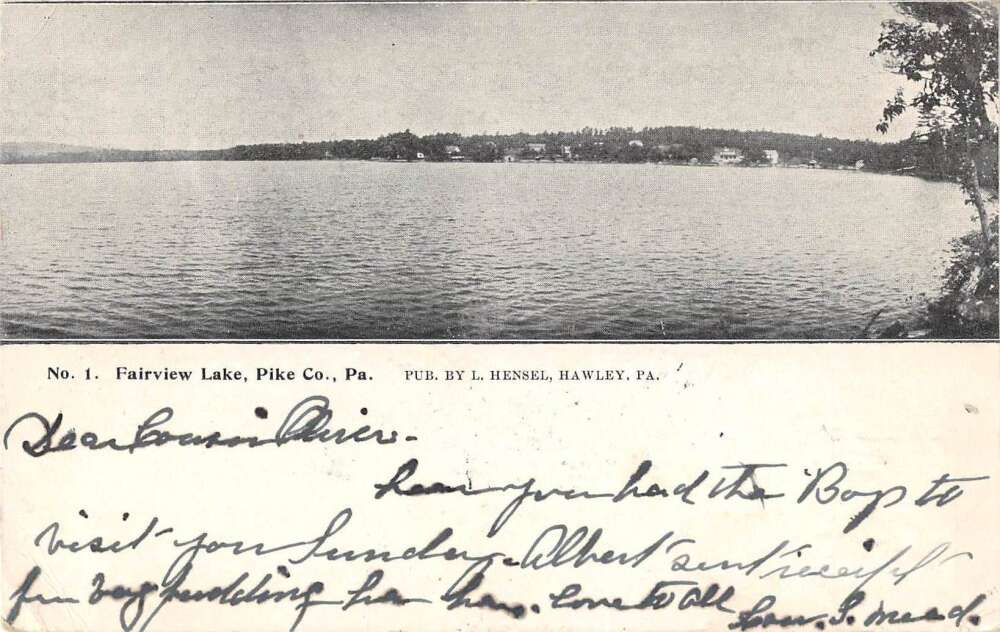 No. 1. Fairview Lake, Pike Co., Pa. PUB. BY L. HENSEL, HAWLEY, PA.
Dear Cousin
hear you had the Boys to
visit you Sunday. Albert sent
pudding ha ha. love to all S. Mead.